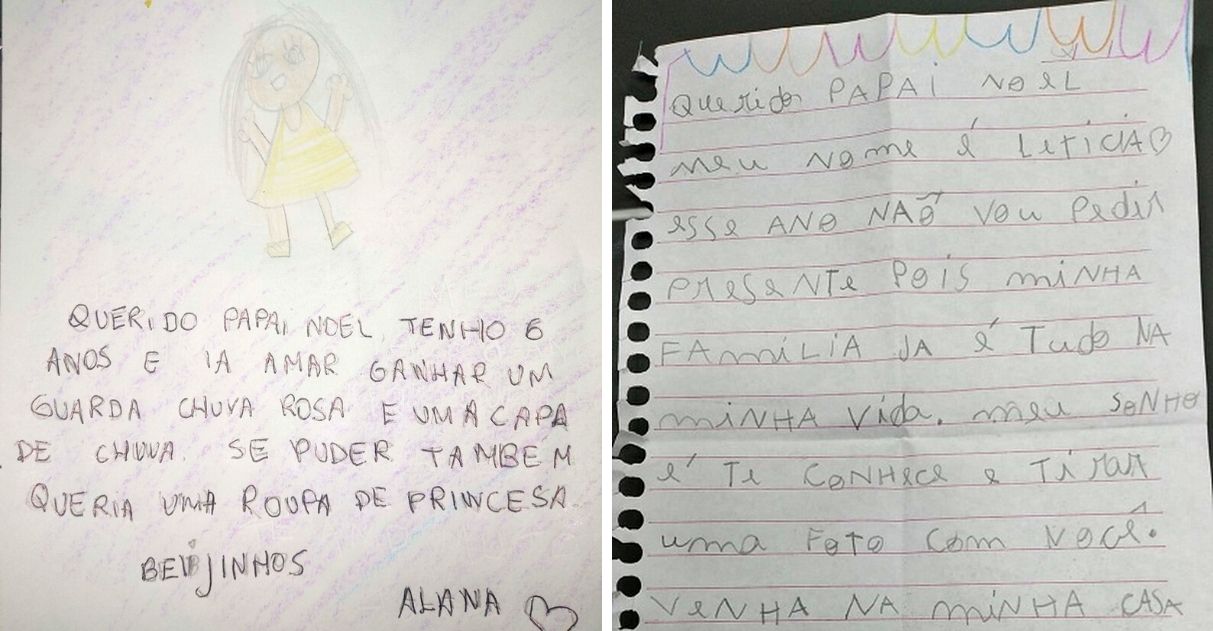 QUERIDO PAPAI NOEL, TENHO 6
ANOS E IA AMAR GANHAR UM
GUARDA CHUVA ROSA E UMA CAPA
DE CHUVA. SE PUDER TAMBEM
QUERIA UMA ROUPA DE PRINCESA.
BEIJINHOS
ALANA
Querido PAPAi NOEL
meu Nome é LETICIA
esse ANO NAÕ VOU Pedir
PResente POIS miNHA
FAmiLIA JA é Tudo NA
miNHA Vida. meu SONHO
é Te CONHece e TiRAR
uma FOTO Com Você.
VeNHA NA miNHA CASA